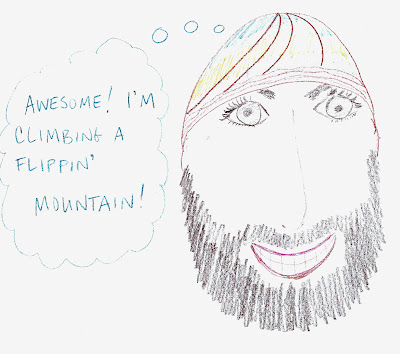 AWESOME! I'M
CLIMBING A
FLIPPIN'
MOUNTAIN!